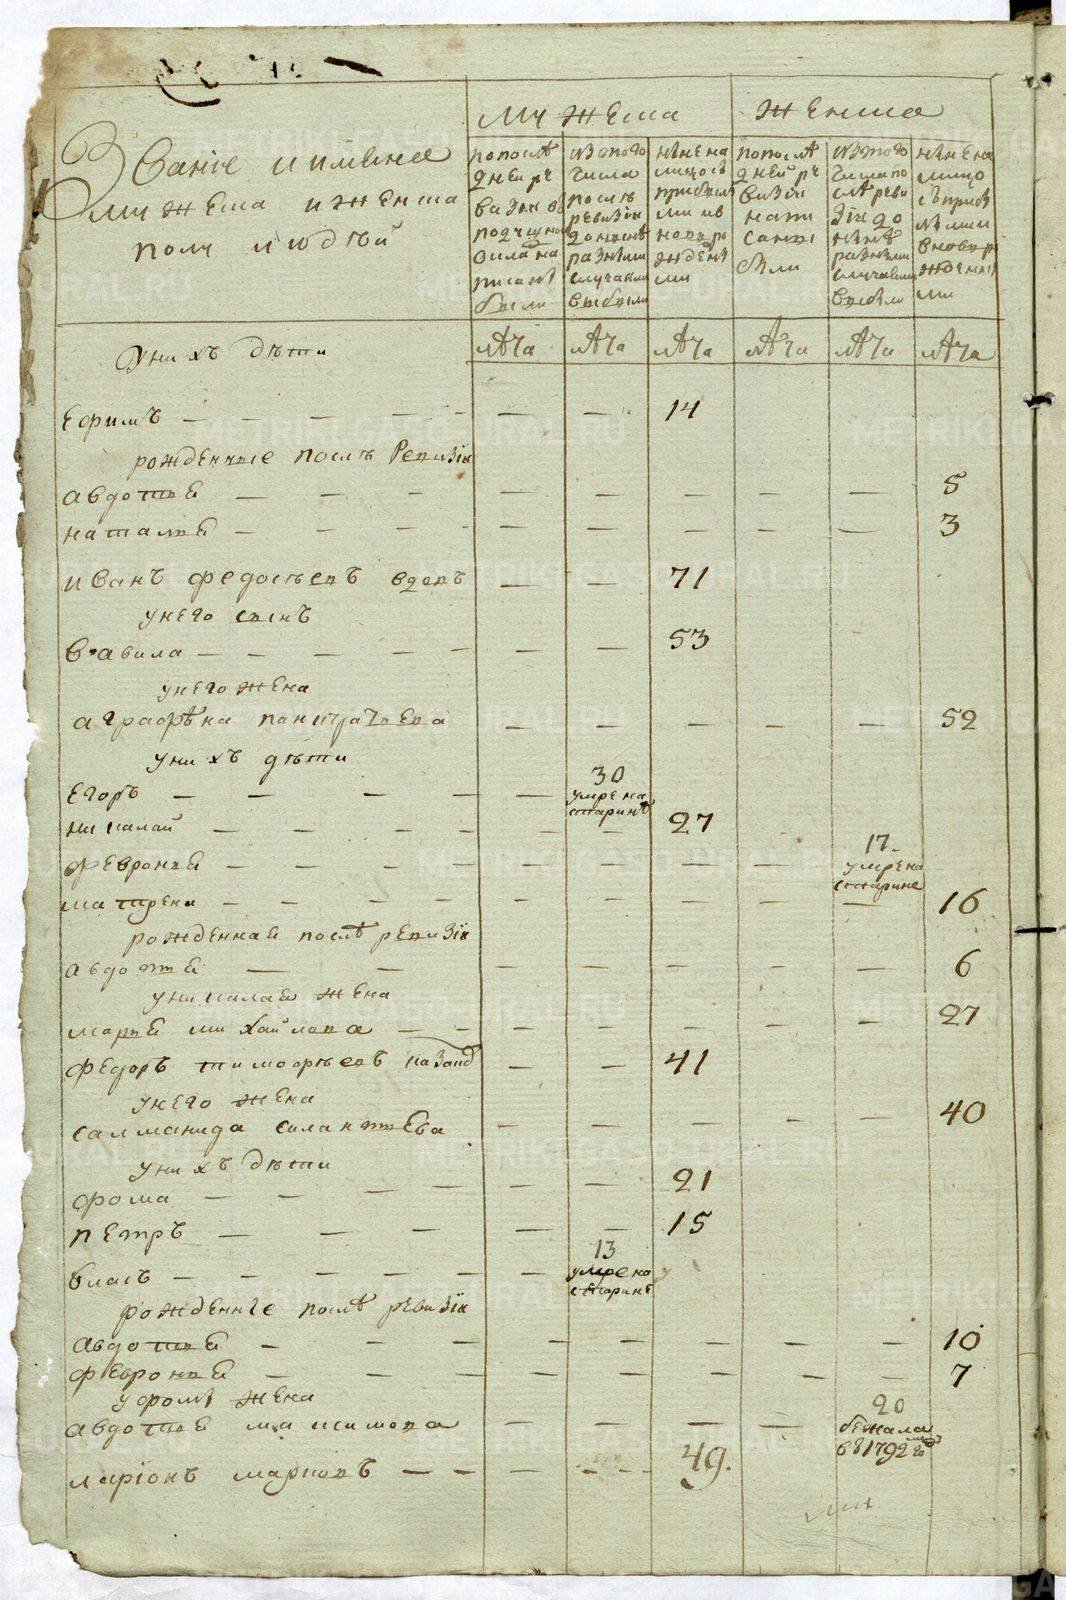 Звание и имена
мужеска и женска
полу людей
мужеска
женска
по после
дней ре
визии об
подушном
окладе на
писаны
были
из того
числа
после
ревизии
до ныне
разными
случаями
выбыли
ныне на
лицо съ
прибылы
ми и в
новь ро
жденны
ми
по после
дней ре
визии
напи
саны
были
из того
числа по
сле реви
зии до
ныне
разными
случаями
выбыли
ныне на
лицо
съ прибы
лыми и
вновь ро
жденны
ми
у нихъ дѣти
лѣта
лѣта
лѣта
лѣта
лѣта
лѣта
Ефимъ — — — — — — 14
рожденные послѣ Ревизіи
авдотья — — — — — — — — 5
наталья — — — — — — — — 3
иванъ федосѣевъ вдовъ — — 71
у него сынъ
вавила — — — — — — 53
у него жена
аграфѣна панкратьева — — — — — 52
у нихъ дѣти
Егоръ — — — — — 30
умре на
старинѣ
николай — — — — — — 27
февронья — — — — — — — — 17
умре на
старине
матрена — — — — — — — — — 16
рожденная послѣ ревизіи
авдотья — — — — — — — 6
у николая жена
марья михайлова — — — — — — — 27
федоръ тимофѣевъ — — 41
у него жена
салманида силантьева — — — — — 40
у нихъ дѣти
фома — — — — — — 21
петръ — — — — — 15
власъ — — — — — — 13
умре на
старине
рожденные послѣ ревизіи
авдотья — — — — — — — — — 10
февронья — — — — — — — — — 7
у фомы жена
авдотья максимова — — — — 20
бежала
въ 1792 годѣ
ларіонъ марковъ — — — — — 49.